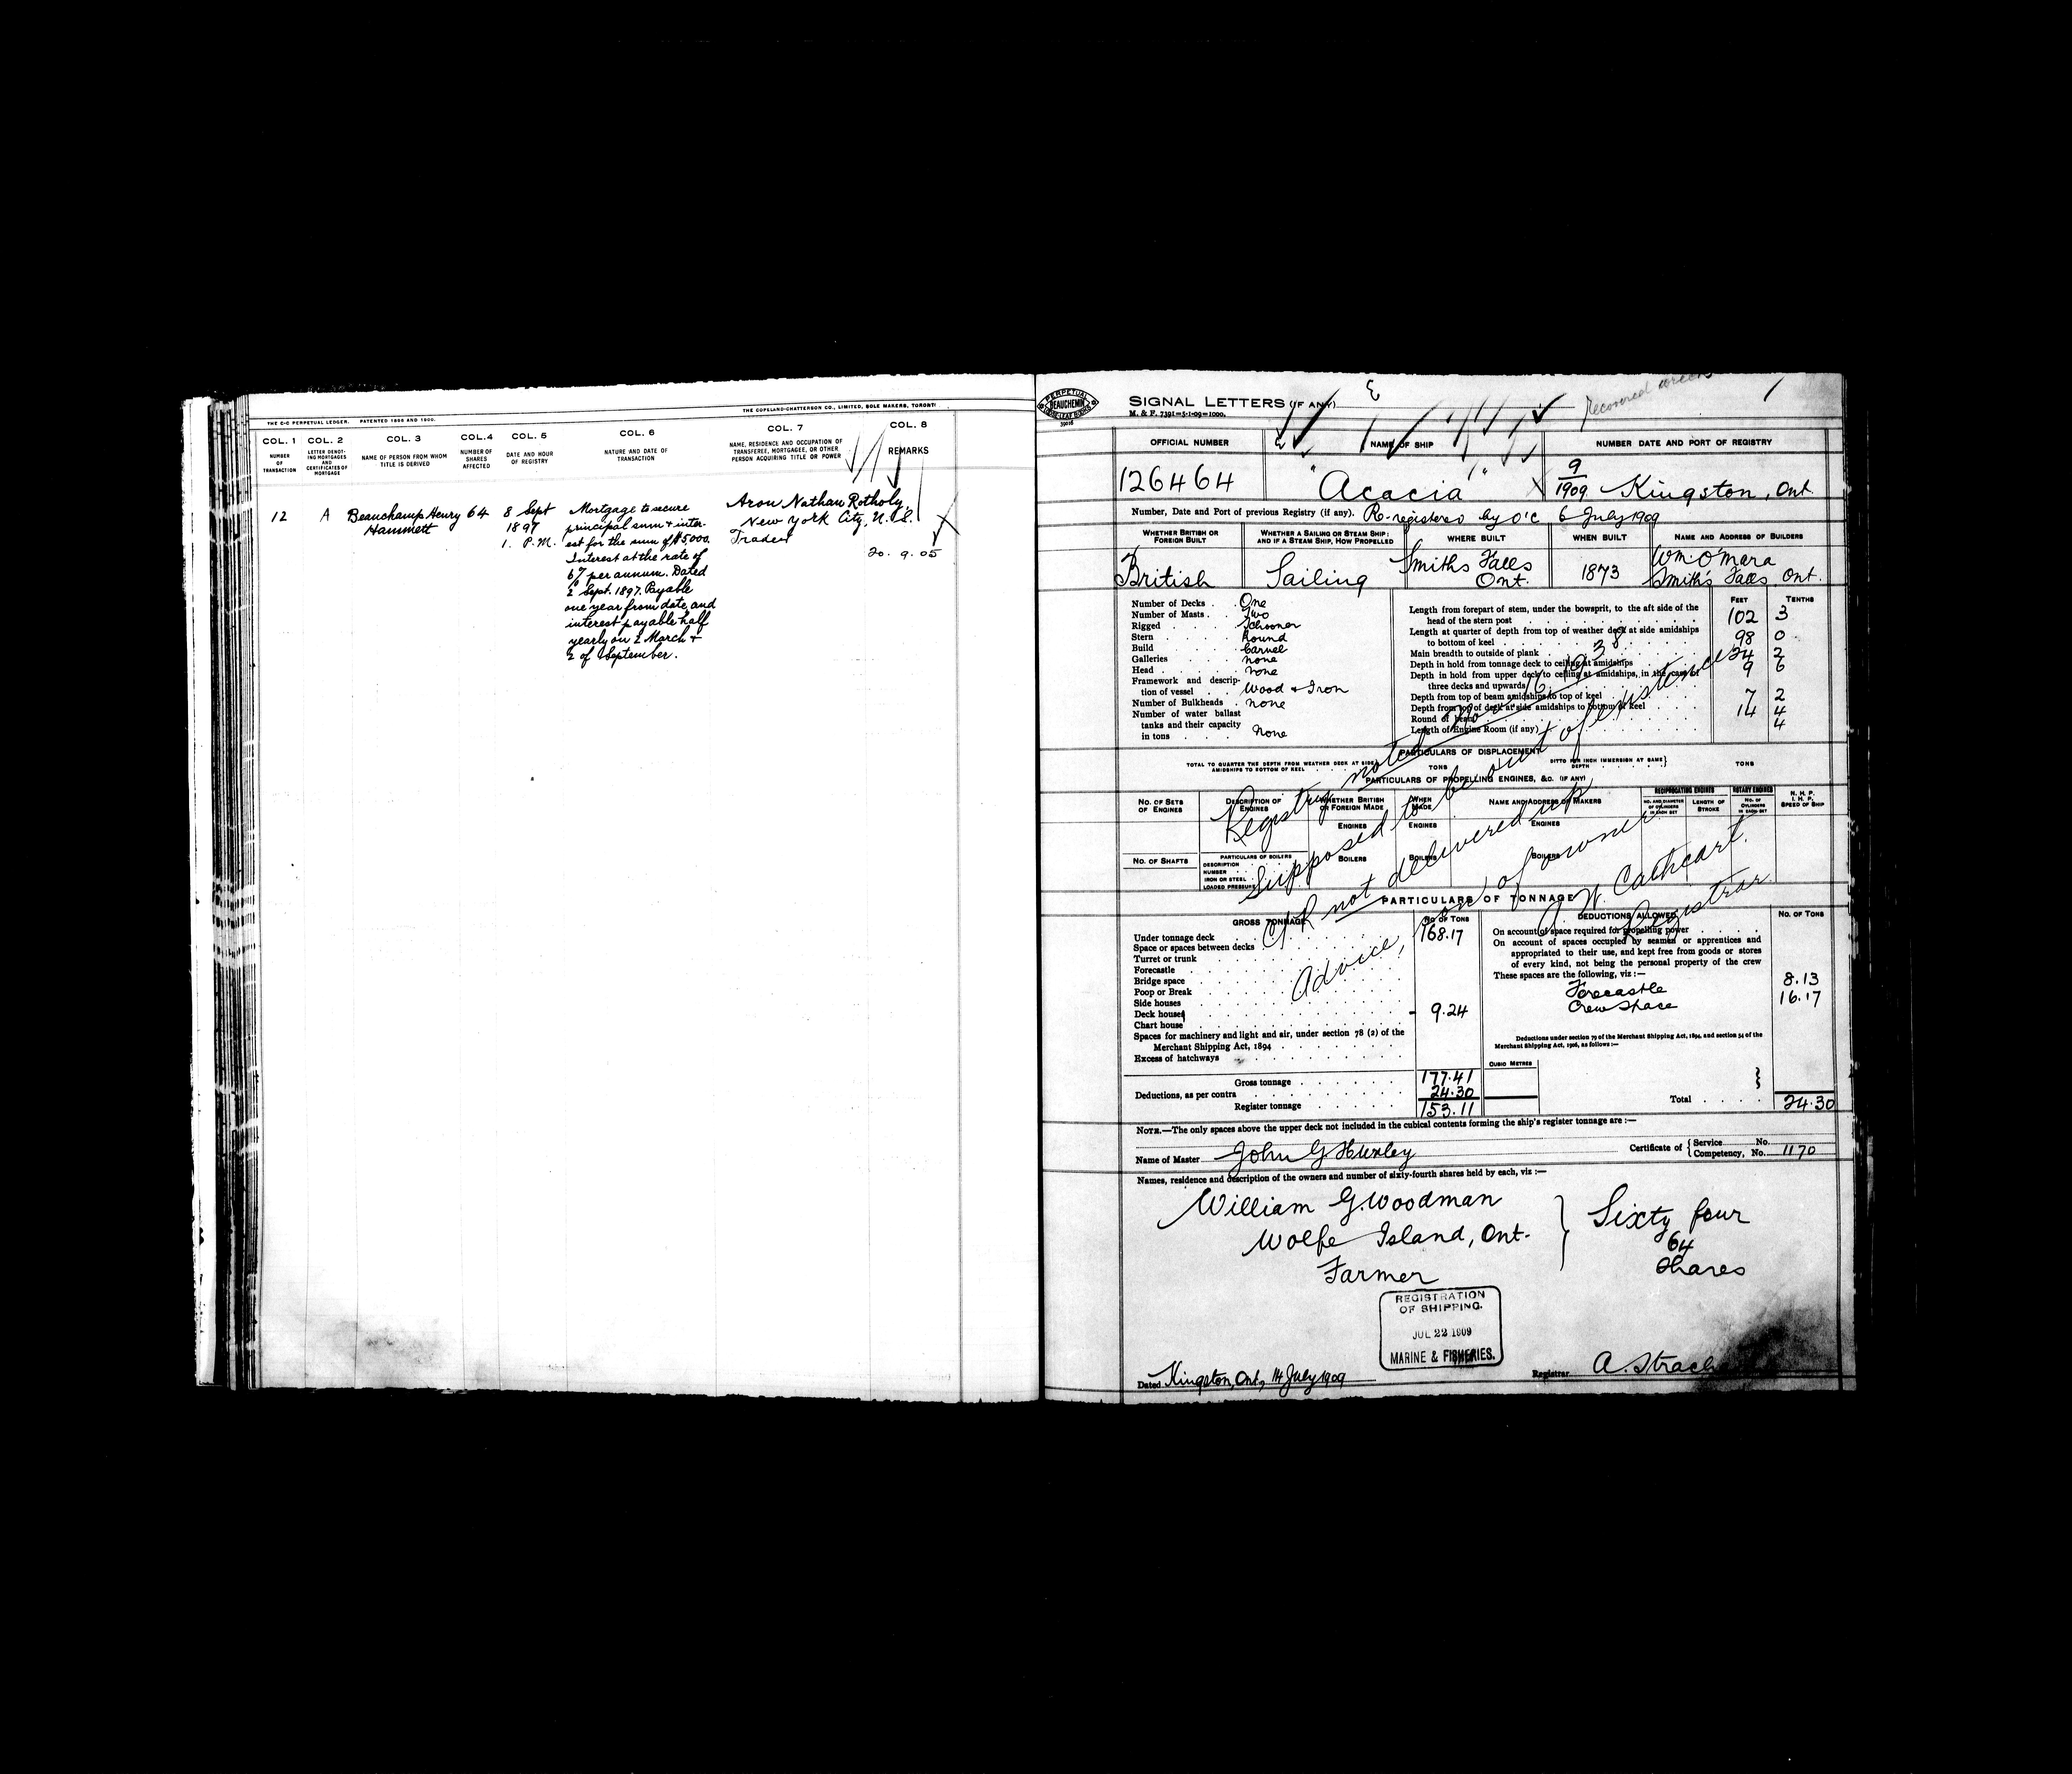 THE C-C PERPETUAL LEDGER. PATENTED 1896 AND 1900.
THE COPELAND-CHATTERSON CO., LIMITED, SOLE MAKERS, TORONTO
COL. 1 COL. 2 COL. 3 COL. 4 COL. 5 COL. 6 COL. 7 COL. 8
NUMBER OF TRANSACTION
LETTER DENOTING MORTGAGES AND CERTIFICATES OF MORTGAGE
NAME OF PERSON FROM WHOM TITLE IS DERIVED
NUMBER OF SHARES AFFECTED
DATE AND HOUR OF REGISTRY
NATURE AND DATE OF TRANSACTION
NAME, RESIDENCE AND OCCUPATION OF TRANSFEREE, MORTGAGEE, OR OTHER PERSON ACQUIRING TITLE OR POWER
REMARKS
12 A Beauchamp Henry Hammett 64
8 Sept
1897
1. P.M.
Mortgage to secure
principal sum & inter-
est for the sum of $5,000.
Interest at the rate of
6% per annum. Dated
2 Sept. 1897. Payable
one year from date, and
interest payable half
yearly on 2 March &
2 of September.
Aron Nathan Rotholz,
New York City, U.S.
Trader
20. 9. 05
PERPETUAL
BEAUCHEMIN
LOOSE LEAF BINDER
39026
SIGNAL LETTERS (IF ANY)
M. & F. 7391—5-1-09—1000.
Recovered wreck
1
OFFICIAL NUMBER
NAME OF SHIP
NUMBER DATE AND PORT OF REGISTRY
126464
"Acacia"
9/1909 Kingston, Ont.
Number, Date and Port of previous Registry (if any). Re-registered by O'C 6 July 1909
WHETHER BRITISH OR FOREIGN BUILT
WHETHER A SAILING OR STEAM SHIP; AND IF A STEAM SHIP, HOW PROPELLED
WHERE BUILT
WHEN BUILT
NAME AND ADDRESS OF BUILDERS
British
Sailing
Smiths Falls Ont.
1873
Wm. O'Mara
Smith's Falls, Ont.
Number of Decks One
Number of Masts Two
Rigged Schooner
Stern Round
Build Carvel
Galleries none
Head none
Framework and description of vessel Wood & Iron
Number of Bulkheads none
Number of water ballast tanks and their capacity in tons none
FEET TENTHS
Length from forepart of stem, under the bowsprit, to the aft side of the head of the stern post 102 3
Length at quarter of depth from top of weather deck at side amidships to bottom of keel 98 0
Main breadth to outside of plank 24 2
Depth in hold from tonnage deck to ceiling at amidships 9 6
Depth in hold from upper deck to ceiling at amidships, in the case of three decks and upwards
Depth from top of beam amidships to top of keel 7 2
Depth from top of deck at side amidships to bottom of keel 14 4
Round of beam 4
Length of Engine Room (if any)
PARTICULARS OF DISPLACEMENT
TOTAL TO QUARTER THE DEPTH FROM WEATHER DECK AT SIDE AMIDSHIPS TO BOTTOM OF KEEL TONS
DITTO PER INCH IMMERSION AT SAME DEPTH TONS
PARTICULARS OF PROPELLING ENGINES, &C. (IF ANY)
NO. OF SETS OF ENGINES
DESCRIPTION OF ENGINES
WHETHER BRITISH OR FOREIGN MADE
WHEN MADE
NAME AND ADDRESS OF MAKERS
RECIPROCATING ENGINES
NO. AND DIAMETER OF CYLINDERS IN EACH SET
LENGTH OF STROKE
ROTARY ENGINES
NO. OF CYLINDERS IN EACH SET
N. H. P.
I. H. P.
SPEED OF SHIP
ENGINES ENGINES ENGINES
NO. OF SHAFTS
PARTICULARS OF BOILERS
DESCRIPTION
NUMBER
IRON OR STEEL
LOADED PRESSURE
BOILERS BOILERS BOILERS
Registry noted Nov 16, 1938
Supposed to be out of existence
C/R not delivered up
Advice, of owner
A. W. Cathcart.
Registrar.
PARTICULARS OF TONNAGE
GROSS TONNAGE NO. OF TONS
Under tonnage deck 168.17
Space or spaces between decks
Turret or trunk
Forecastle
Bridge space
Poop or Break
Side houses
Deck houses 9.24
Chart house
Spaces for machinery and light and air, under section 78 (2) of the Merchant Shipping Act, 1894
Excess of hatchways
Gross tonnage 177.41
Deductions, as per contra 24.30
Register tonnage 153.11
DEDUCTIONS ALLOWED NO. OF TONS
On account of space required for propelling power
On account of spaces occupied by seamen or apprentices and appropriated to their use, and kept free from goods or stores of every kind, not being the personal property of the crew
These spaces are the following, viz :—
Forecastle 8.13
Crew Space 16.17
Deductions under section 79 of the Merchant Shipping Act, 1894, and section 54 of the Merchant Shipping Act, 1906, as follows :—
CUBIC METRES
Total 24.30
NOTE.—The only spaces above the upper deck not included in the cubical contents forming the ship's register tonnage are :—
Name of Master John G Huxley
Certificate of { Service No.
Competency, No. 1170
Names, residence and description of the owners and number of sixty-fourth shares held by each, viz :—
William G. Woodman
Wolfe Island, Ont.
Farmer
Sixty four
64
Shares
REGISTRATION
OF SHIPPING.
JUL 22 1909
MARINE & FISHERIES.
Dated Kingston, Ont., 14 July 1909
Registrar A. Strach